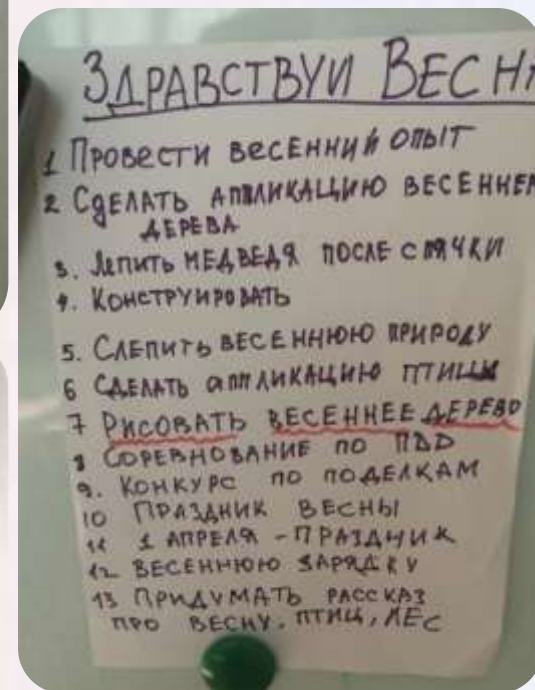 ЗДРАВСТВУЙ ВЕСН
1 ПРОВЕСТИ ВЕСЕННИЙ ОПЫТ
2 СДЕЛАТЬ АППЛИКАЦИЮ ВЕСЕННЕ
ДЕРЕВА
3. ЛЕПИТЬ МЕДВЕДЯ ПОСЛЕ СПЯЧКИ
4. КОНСТРУИРОВАТЬ
5. СЛЕПИТЬ ВЕСЕННЮЮ ПРИРОДУ
6 СДЕЛАТЬ АППЛИКАЦИЮ ПТИЦЫ
7 РИСОВАТЬ ВЕСЕННЕЕ ДЕРЕВО
8 СОРЕВНОВАНИЕ ПО ПДД
9. КОНКУРС ПО ПОДЕЛКАМ
10 ПРАЗДНИК ВЕСНЫ
11 1 АПРЕЛЯ - ПРАЗДНИК
12 ВЕСЕННЮЮ ЗАРЯДКУ
13 ПРИДУМАТЬ РАССКАЗ
ПРО ВЕСНУ, ПТИЦ, ЛЕС